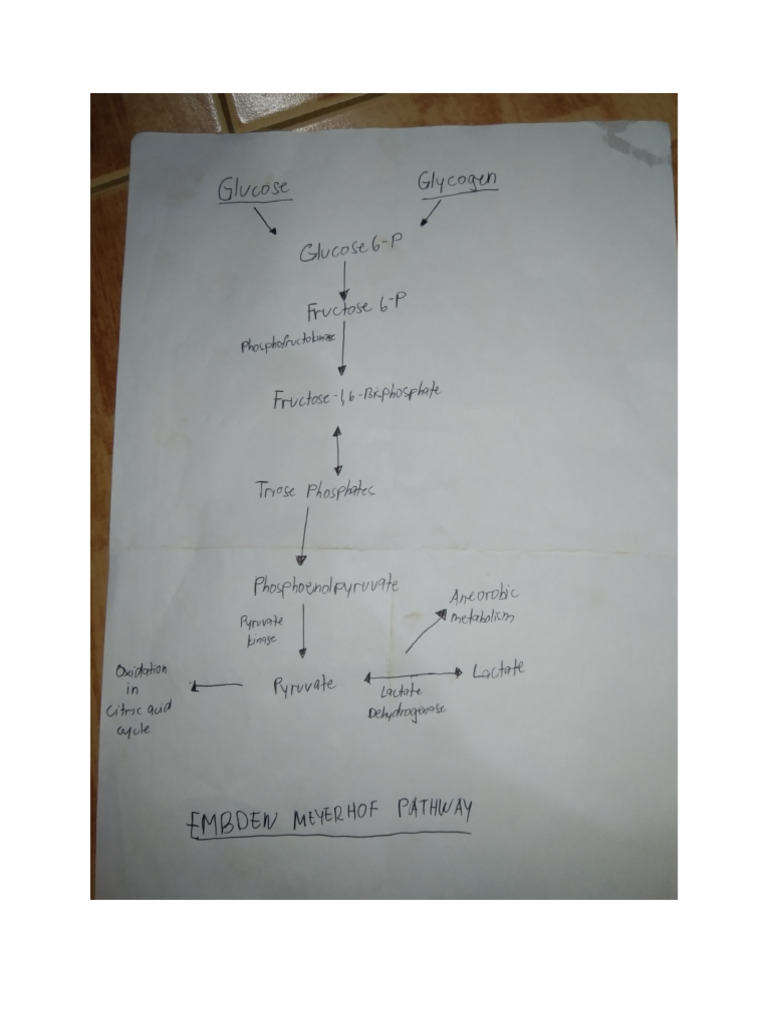 Glucose
Glycogen
Glucose 6-P
Fructose 6-P
Phosphofructokinase
Fructose-1,6-Bisphosphate
Triose Phosphates
Phosphoenolpyruvate
Aneorobic
metabolism
Pyruvate
kinase
Oxidation
in
Citric acid
cycle
Pyruvate
Lactate
Lactate
Dehydrogenase
EMBDEN MEYERHOF PATHWAY